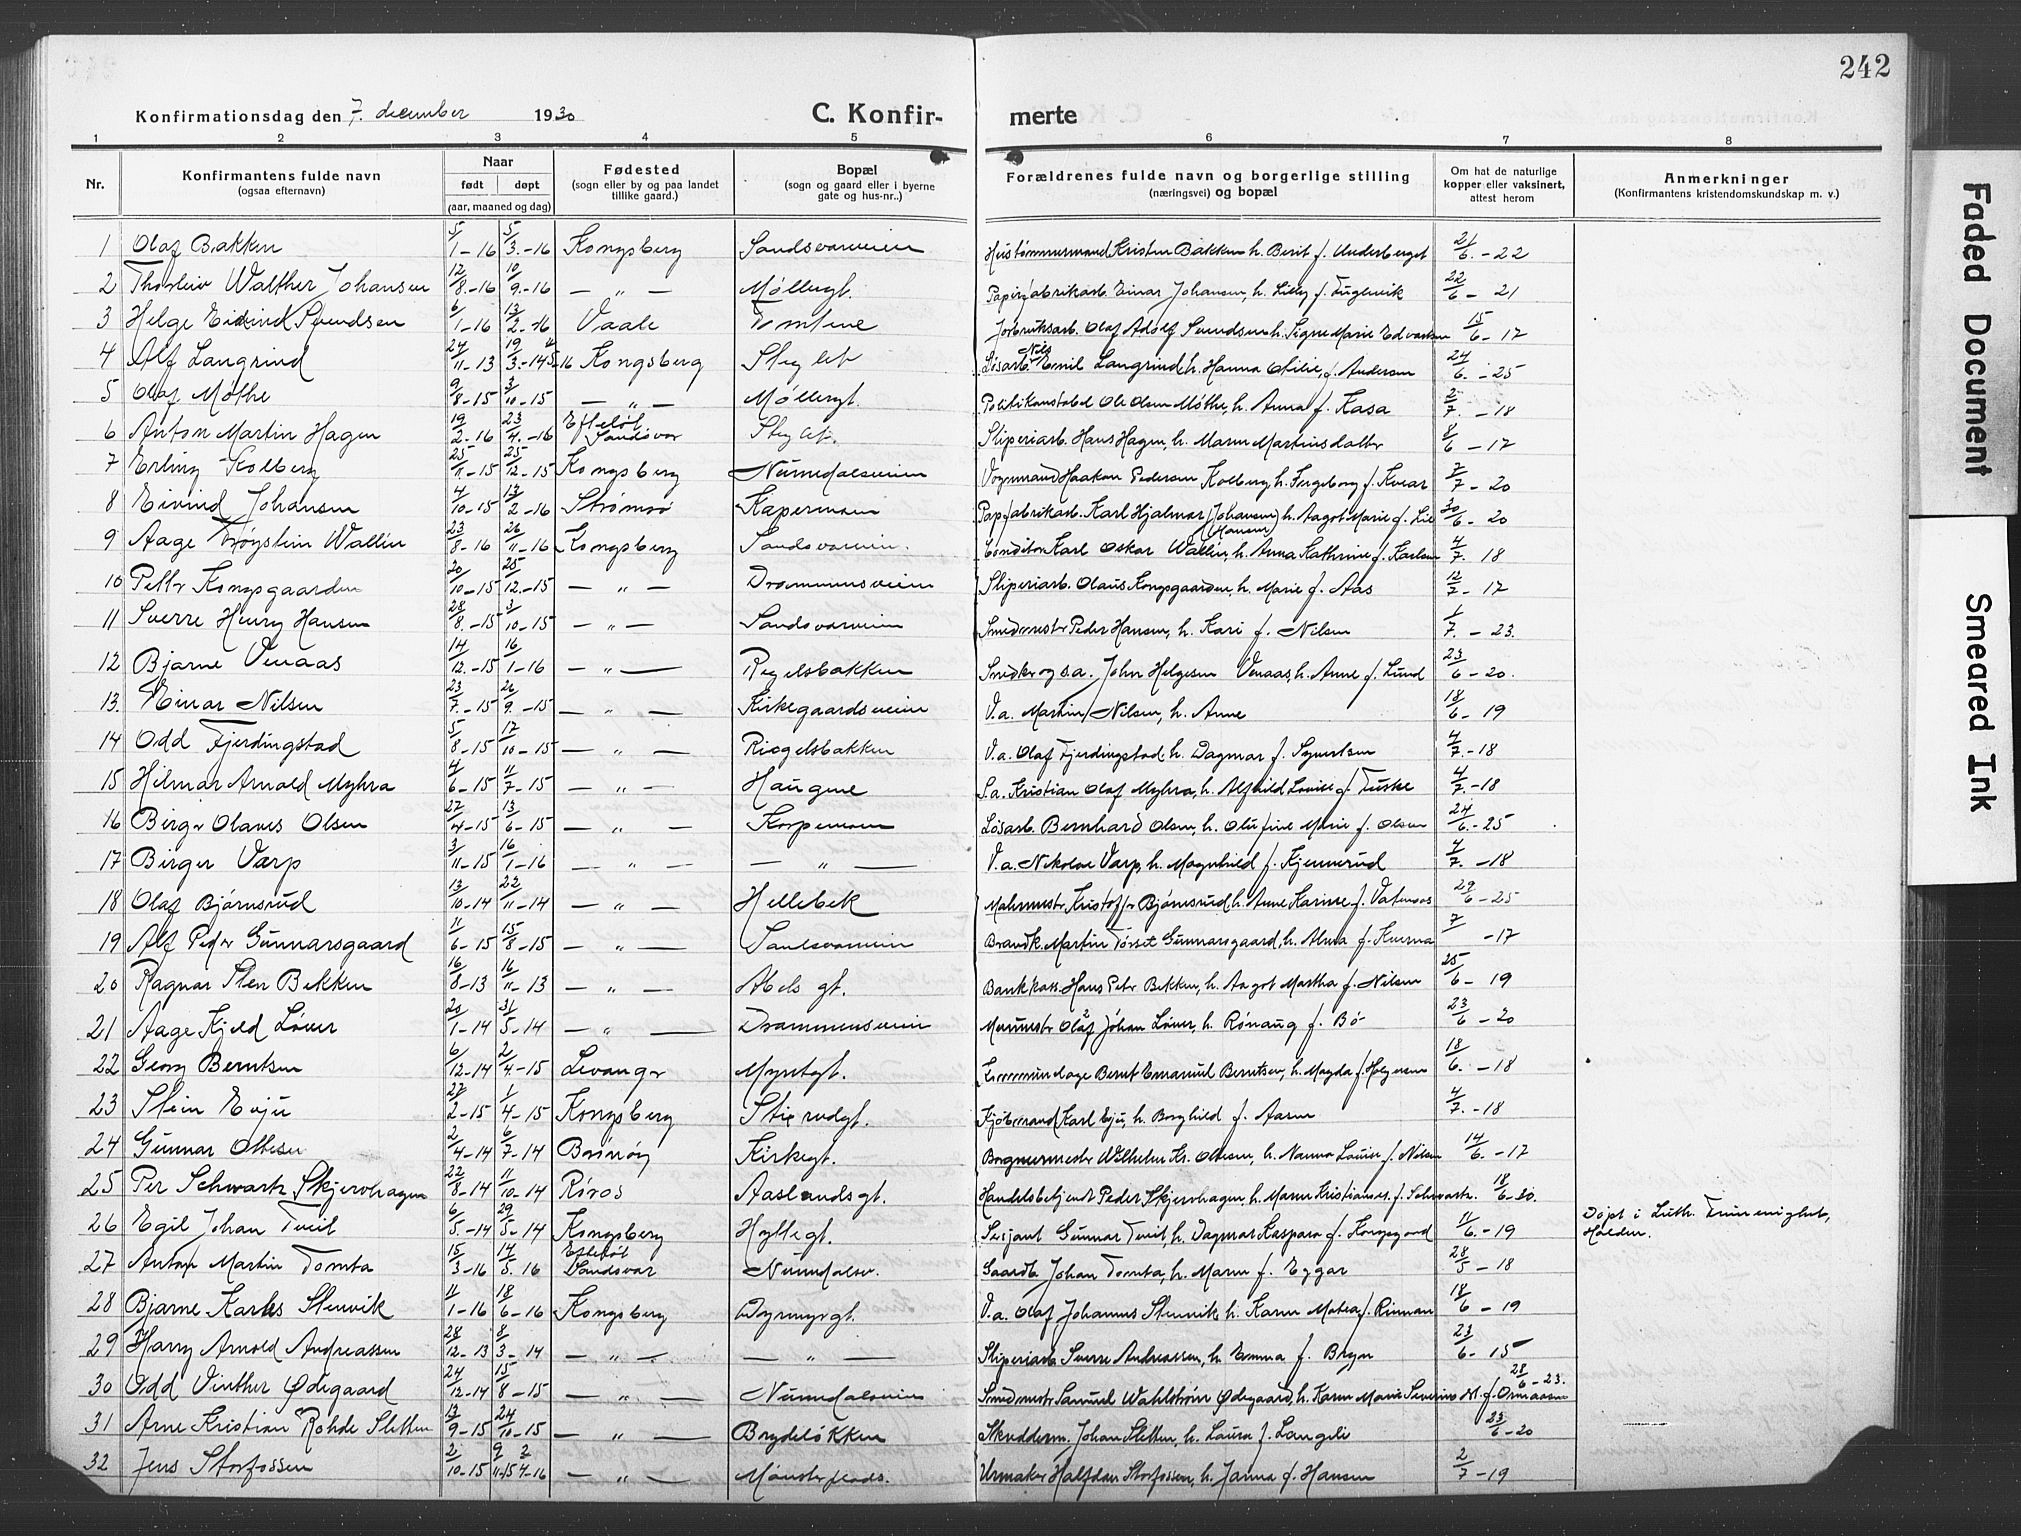 242
Konfirmationsdag den 7. december 1930 C. Konfirmerte
1 2 3 4 5 6 7 8
Nr. Konfirmantens fulde navn (ogsaa efternavn) Naar født døpt (aar, maaned og dag) Fødested (sogn eller by og paa landet tillike gaard.) Bopæl (sogn og gaard eller i byerne gate og hus-nr..) Forældrenes fulde navn og borgerlige stilling (næringsvei) og bopæl Om hat de naturlige kopper eller vaksinert, attest herom Anmerkninger (Konfirmantens kristendomskundskap m. v.)
1 Olaf Bakken 5/1-16 5/3-16 Kongsberg Sandsværveien Hustømmermand Kristen Bakken h. Berit f. Underberget 21/6-22
2 Thorleiv Walther Johansen 12/8-16 10/9-16 — „ — Møllergt. Papirfabrikarb. Einar Johansen, h. Lilly f. Fuglevik 22/6-21
3 Helge Eivind Svendsen 6/1-16 13/2-16 Vaale Tomtene Jorbruksarb. Olaf Adolf Svendsen h. Signe Marie Edvardsen 15/6-17
4 Alf Langrind 24/11-13 19/3-14 Kongsberg Steglet Løsarb. Nils Emil Langrind h. Hanna Otilie, f. Andersen 24/6-25
5 Olaf Møthe 9/8-15 3/10-15 — „ — Møllergt. Politikonstabel Ole Olsen Møthe, h. Anna f. Kasa 2/7-18
6 Anton Martin Hagen 19/2-16 23/4-16 Efteløt Sandsvær Steglet. Sliperiarb. Hans Hagen, h. Maren Martinsdatter 8/6-17
7 Erling Kolberg 25/11-15 25/12-15 Kongsberg Numedalsveien Vognmand Haakon Pedersen Kolberg h. Ingeborg f. Kvear 7/7-20
8 Eivind Johansen 4/10-15 13/2-16 Strømsø Kapermoen Papfabrikarb. Karl Hjalmar (Johansen) (Hansen) h. Aagot Marie f. Lie 30/6-20
9 Aage Trøystein Wallin 23/8-16 26/11-16 Kongsberg Sandsværveien. Conditor Karl Oskar Wallin, h. Anna Kathrine f. Karlsen 4/7-18
10 Petter Kongsgaarden 20/10-15 25/12-15 — „ — Drammensveien Sliperiarb. Olaus Kongsgaarden, h. Marie f. Aas 12/7-17
11 Sverre Henry Hansen 28/8-15 3/10-15 — „ — Sandsværveien Smedmester Peder Hansen, h. Kari f. Nilsen 1/7-23.
12 Bjarne Venaas 14/12-15 16/1-16 — „ — Regelsbakken Snedker og s.a. John Helgesen Venaas, h. Anne f. Lund 23/6-20.
13. Einar Nilsen 23/7-15 26/9-15 — „ — Kirkegaardsveien V.a. Martin Nilsen, h. Anne 18/6-19
14 Odd Fjerdingstad 5/8-15 17/10-15 — „ — Riogelsbakken V.a. Olaf Fjerdingstad, h. Dagmar f. Syvertsen 4/7-18
15 Hilmar Arnold Myhra 4/6-15 11/7-15 — „ — Haugene S.a. Kristian Olaf Myhra, h. Alfhild Lovise f. Tuske 4/7-18
16 Birger Olaves Olsen 27/4-15 13/6-15 — „ — Korpemoen Løsarb. Bernhard Olsen, h. Olufine Marie f. Olsen 24/6-25
17 Birger Varp 3/11-15 16/1-16 — „ — — „ — V.a. Nikolai Varp, h. Magnhild f. Kjennerud 4/7-18
18 Olaf Bjørnsrud 13/10-14 22/11-14 — „ — Hellebek Malermestr. Kristoffer Bjørnsrud, h. Anne Karine f. Vatnaas 29/6-25
19 Alf Peder Gunnarsgaard 11/6-15 15/8-15 — „ — Sandsværveien Brandk. Martin Torset Gunnarsgaard, h. Alma f. Kverna 7/ -17
20 Ragnar Sten Bekken 16/8-13 16/11-13 — „ — Abels gt. Bankkass. Hans Peter Bekken, h. Aagot Martha f. Nilsen 25/6-19
21 Aage Kjeld Løver 20/1-14 31/5-14 — „ — Drammensveien Murmestr Olaf Johan Løver, h. Rønaug f. Bø 23/6-20
22 Georg Berntsen 6/12-14 2/4-15 Levanger Myntgt. Bernt Emanuel Berntsen, h. Magda f. Holgersen 18/6-18
23 Stein Evju 27/2-15 1/4-15 Kongsberg Stigerudgt. Kjøbmand Karl Evju, h. Borghild f. Aasen 4/7-18
24 Gunnar Ottesen 2/4-14 6/7-14 Brønøy Kirkegt. Bogmermestr Wilhelm Kr. Ottesen, h. Nanna Louise f. Nilsen 14/6-17
25 Per Schwartz Skjervhagen 22/8-14 11/10-14 Røros Aaslandsgt. Handelsbetjent Peder Skjervhagen, h. Maren Kristianse f. Schwartz. 18/6-20.
26 Egil Johan Tveit 6/5-14 29/5-14 Kongsberg Hyttegt. Sersjant Gunnar Tveit, h. Dagmar Kaspara f. Kongsgaard 11/6-19 Døpt i Luth. Frimenighet, Halden.
27 Anton Martin Tomta 15/3-16 14/5-16 Efteløt Sandsvær Numedalsv. Gaardb. Johan Tomta, h. Maren f. Eggar 28/5-18
28 Bjarne Karlus Stenvik 11/1-16 18/6-16 Kongsberg Dyrmyrgt. V.a. Olaf Johannes Stenvik h. Karen Matea f. Rinnan 18/6-19
29 Harry Arnold Andreassen 28/12-13 8/3-14 — „ — — „ — Sliperiarb. Sverre Andreassen, h. Emma f. Bryn 23/6-15
30 Odd Vinther Ødegaard 24/12-14 15/8-15 — „ — Numedalsveien Smedmestr Samuel Wahlstrøm Ødegaard, h. Karen Marie Severine M. f. Ormaasen 28/6-23.
31 Arne Kristian Rohde Sletten 13/9-15 24/10-15 — „ — Brydeløkken Skredderm. Johan Sletten, h. Laura f. Langelie 23/6-20
32 Jens Storfossen 2/10-15 9/11-15 2/4-16 — „ — Mønsterplads. Urmaker Halfdan Storfossen, h. Janna f. Hansen 2/7-19
Faded Document
Smeared Ink